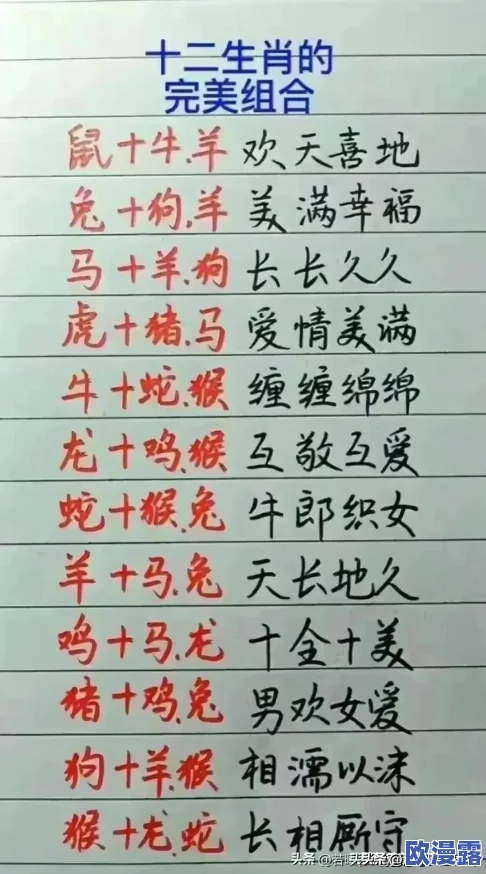 十二生肖的
完美组合
鼠十牛.羊 欢天喜地
兔十狗.羊 美满幸福
马十羊.狗 长长久久
虎十猪.马 爱情美满
牛十蛇.猴 缠缠绵绵
龙十鸡.猴 互敬互爱
蛇十猴.兔 牛郎织女
羊十马.兔 天长地久
鸡十马.龙 十全十美
猪十鸡.兔 男欢女爱
狗十羊.猴 相濡以沫
猴十龙.蛇 长相厮守
头条 @若
欧漫露